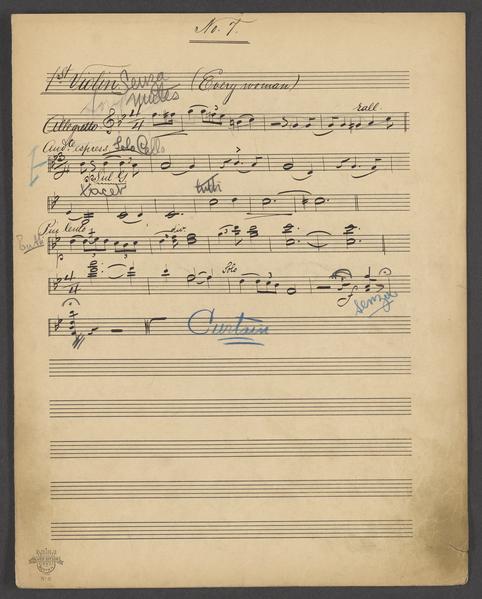 No. 7.
1st Violin Senza (Everywoman)
Mutes
Allegretto rall.
Andte espress. Solo Cello
Sul G
Tacet tutti
Piu lento div.
Solo
senza
Curtain